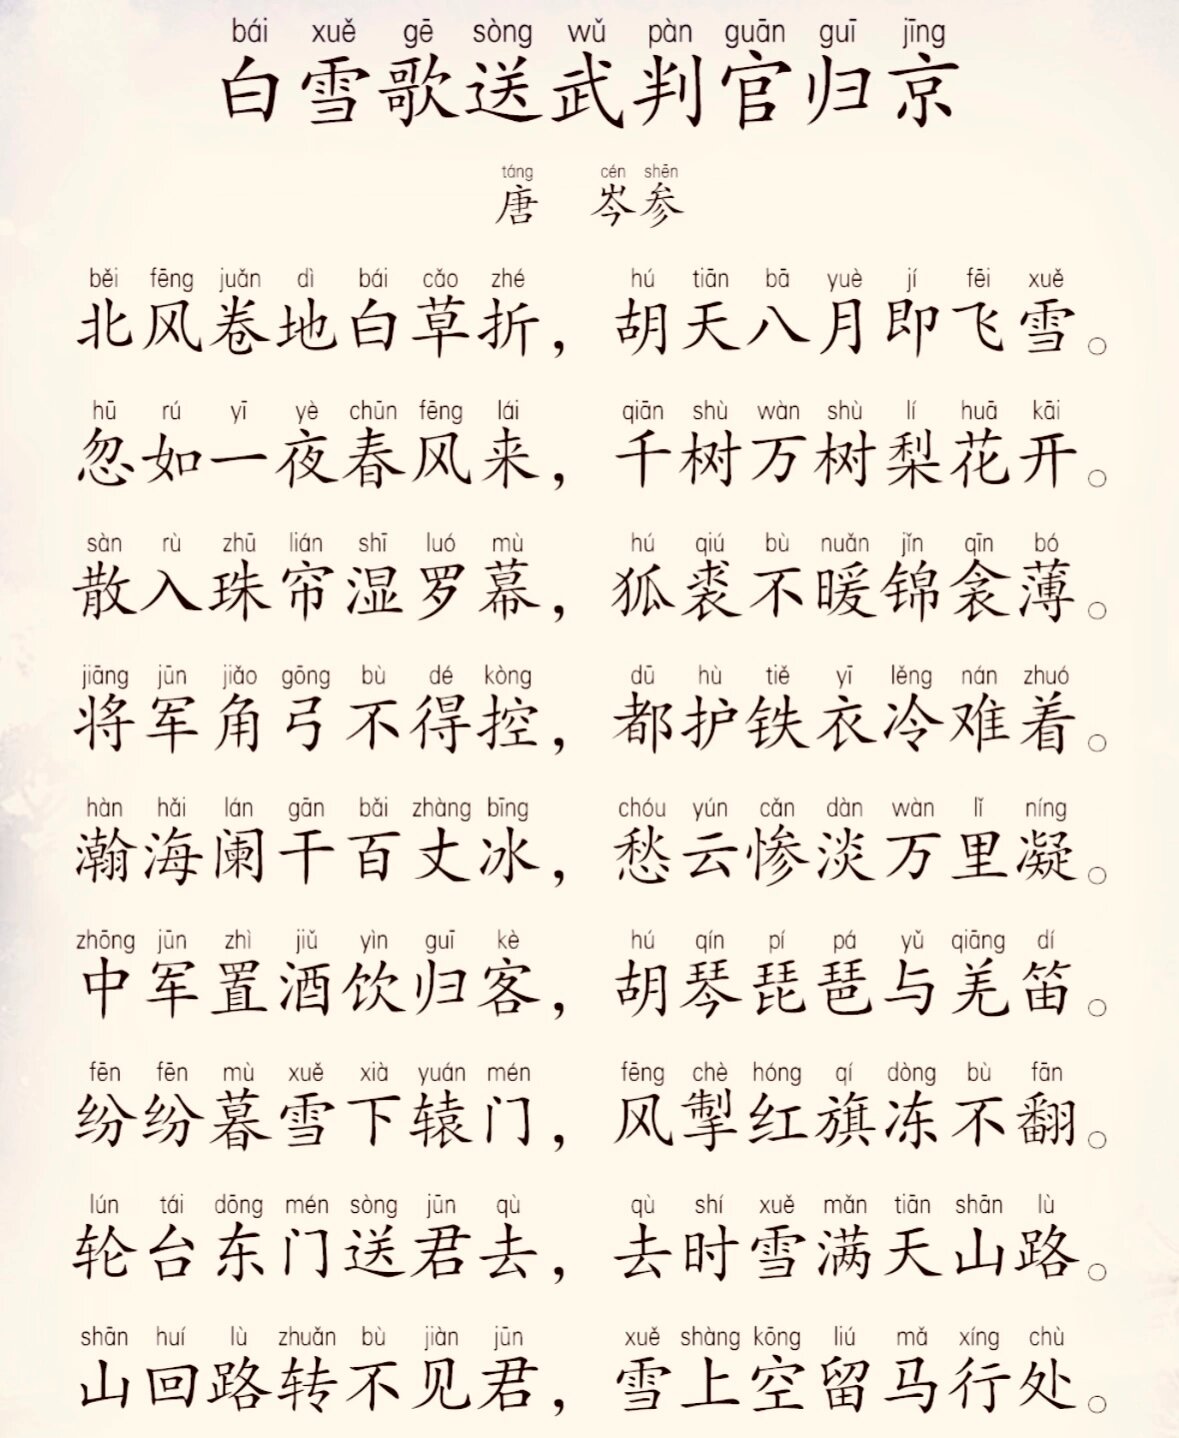 bái xuě gē sòng wǔ pàn guān guī jīng
白雪歌送武判官归京
táng cén shēn
唐 岑参
běi fēng juǎn dì bái cǎo zhé hú tiān bā yuè jí fēi xuě
北风卷地白草折，胡天八月即飞雪。
hū rú yī yè chūn fēng lái qiān shù wàn shù lí huā kāi
忽如一夜春风来，千树万树梨花开。
sàn rù zhū lián shī luó mù hú qiú bù nuǎn jǐn qīn bó
散入珠帘湿罗幕，狐裘不暖锦衾薄。
jiāng jūn jiǎo gōng bù dé kòng dū hù tiě yī lěng nán zhuó
将军角弓不得控，都护铁衣冷难着。
hàn hǎi lán gān bǎi zhàng bīng chóu yún cǎn dàn wàn lǐ níng
瀚海阑干百丈冰，愁云惨淡万里凝。
zhōng jūn zhì jiǔ yìn guī kè hú qín pí pá yǔ qiāng dí
中军置酒饮归客，胡琴琵琶与羌笛。
fēn fēn mù xuě xià yuán mén fēng chè hóng qí dòng bù fān
纷纷暮雪下辕门，风掣红旗冻不翻。
lún tái dōng mén sòng jūn qù qù shí xuě mǎn tiān shān lù
轮台东门送君去，去时雪满天山路。
shān huí lù zhuǎn bù jiàn jūn xuě shàng kōng liú mǎ xíng chù
山回路转不见君，雪上空留马行处。